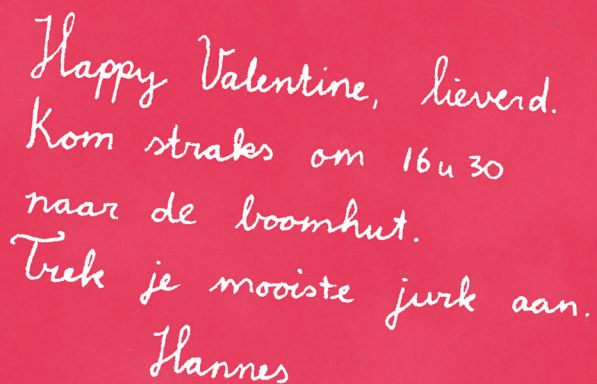 Happy Valentine, lieverd.
Kom straks om 16u30
naar de boomhut.
Trek je mooiste jurk aan.
Hannes